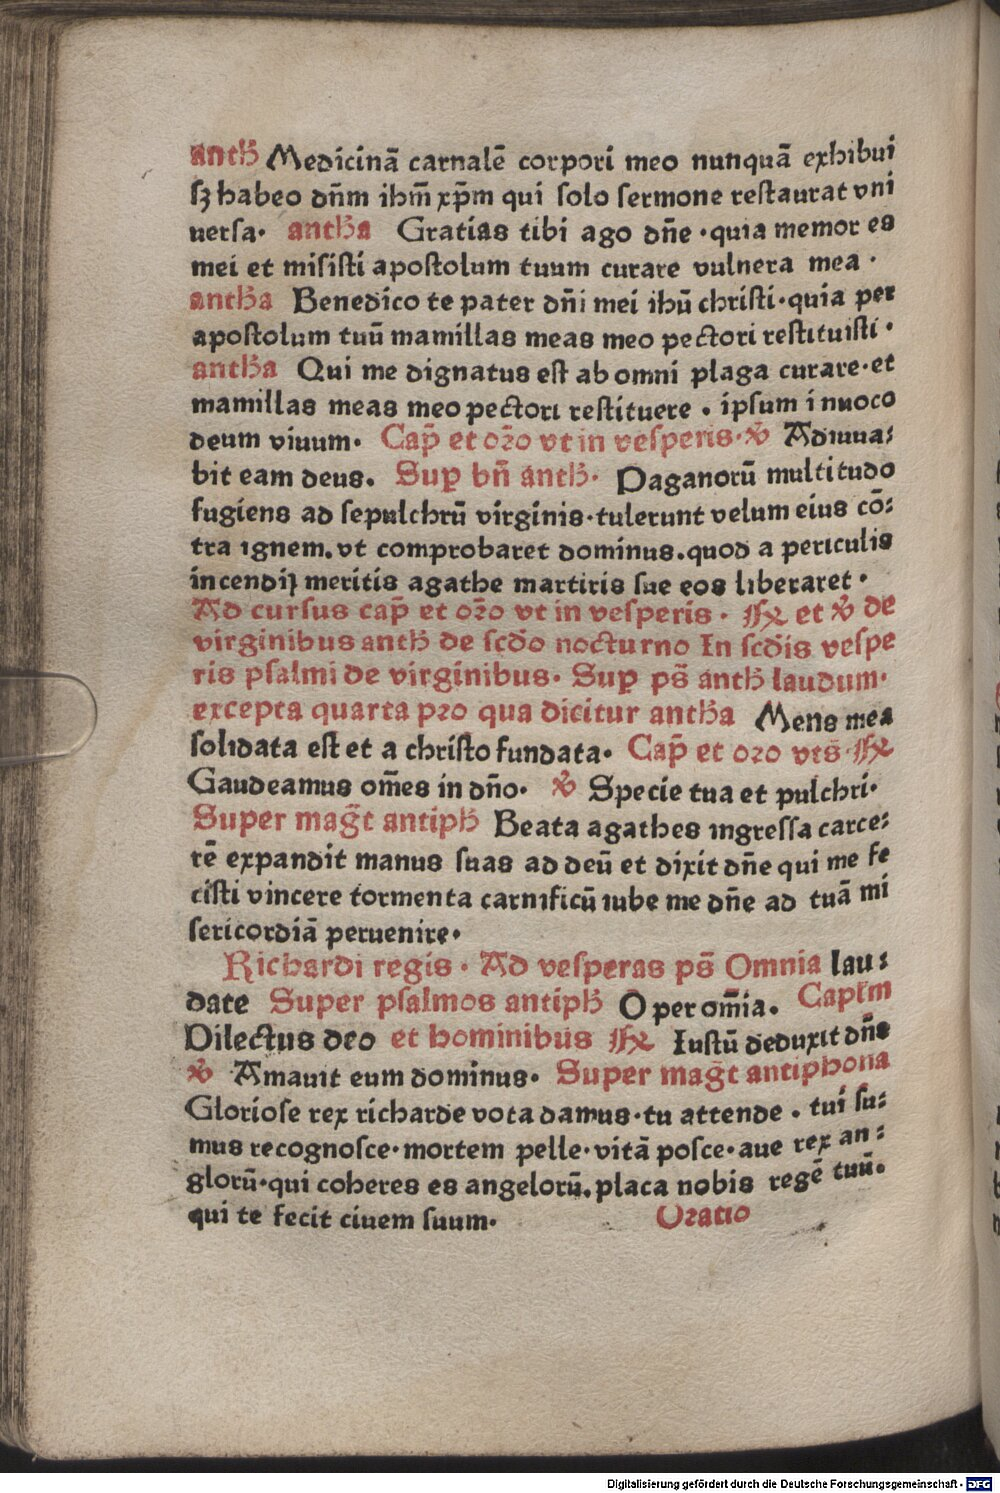 anth̄ Medicinā carnalē corpori meo nunquā exhibui
sꝫ habeo dn̄m ihm̄ xp̄m qui solo sermone restaurat vni
uersa· anth̄a Gratias tibi ago dn̄e ·quia memor es
mei et misisti apostolum tuum curare vulnera mea ·
anth̄a Benedico te pater dn̄i mei ihū christi·quia per
apostolum tuū mamillas meas meo pectori restituisti ·
anth̄a Qui me dignatus est ab omni plaga curare·et
mamillas meas meo pectori restituere . ipsum inuoco
deum viuum· Cap̄ et oꝛ̄o vt in vesperis· ℣ Adiuua⸗
bit eam deus. Suꝑ bn̄ anth̄· Paganorū multitudo
fugiens ad sepulchrū virginis·tulerunt velum eius cō⸗
tra ignem. vt comprobaret dominus.quod a periculis
incendiȷ meritis agathe martiris sue eos liberaret ·
Ad cursus cap̄ et oꝛ̄o vt in vesperis · ℟ et ℣ de
virginibus anth̄ de scd̄o nocturno In scd̄is vespe
ris psalmi de virginibus· Suꝑ ps̄ anth̄ laudum·
excepta quarta pꝛo qua dicitur anth̄a Mens mea
solidata est et a christo fundata· Cap̄ et oꝛo vts̄ ·℟
Gaudeamus om̄es in dn̄o· ℣ Specie tua et pulchri·
Super mag̅t antiph̄ Beata agathes ingressa carce⸗
rē expandit manus suas ad deū et dixit dn̄e qui me fe
cisti vincere tormenta carnificū iube me dn̄e ad tuā mi
sericordiā peruenire·
Richardi regis · Ad vesperas ps̄ Omnia lau⸗
date Super psalmos antiph̄ O per om̄ia. Capt̄m
Dilectus deo et hominibus ℟ Iustū deduxit dn̄s
℣ Amauit eum dominus· Super mag̅t antiphona
Gloriose rex richarde vota damus·tu attende . tui su⸗
mus recognosce·mortem pelle·vitā posce·aue rex an⸗
glorū·qui coheres es angelorū.placa nobis regē tuū·
qui te fecit ciuem suum· Oꝛatio
Digitalisierung gefördert durch die Deutsche Forschungsgemeinschaft - DFG